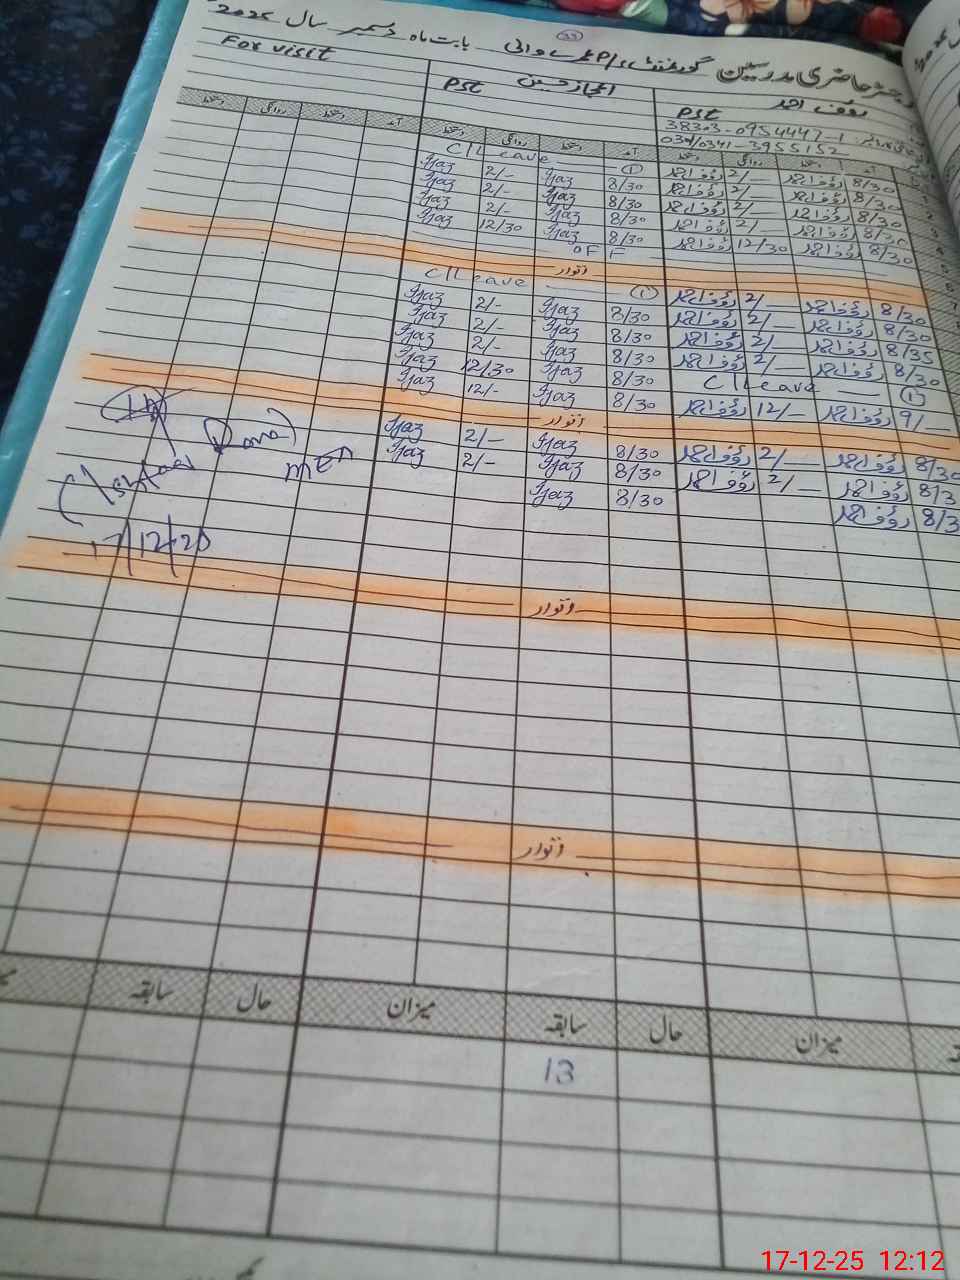 رجسٹر حاضری مدرسین گورنمنٹ بابت ماہ دسمبر سال 2025
33
For visit
PST اعجاز حسین
PST رؤف احمد
38303-0954447-1
0301/0341-3955152
دستخط روانگی دستخط آمد دستخط روانگی دستخط آمد دستخط روانگی دستخط آمد
C/Leave ① رؤف احمد 2/— رؤف احمد 8/30
Ijaz 2/- Ijaz 8/30 رؤف احمد 2/— رؤف احمد 8/30
Ijaz 2/- Ijaz 8/30 رؤف احمد 2/— رؤف احمد 8/30
Ijaz 2/- Ijaz 8/30 رؤف احمد 2/— رؤف احمد 8/30
Ijaz 12/30 Ijaz 8/30 رؤف احمد 12/30 رؤف احمد 8/30
OFF
اتوار
C/Leave ① رؤف احمد 2/— رؤف احمد 8/30
Ijaz 2/- Ijaz 8/30 رؤف احمد 2/— رؤف احمد 8/30
Ijaz 2/- Ijaz 8/30 رؤف احمد 2/— رؤف احمد 8/35
Ijaz 2/- Ijaz 8/30 رؤف احمد 2/— رؤف احمد 8/30
Ijaz 12/30 Ijaz 8/30 C/Leave ①
Ijaz 12/- Ijaz 8/30 رؤف احمد 12/— رؤف احمد 9/—
اتوار
Ijaz 2/- Ijaz 8/30 رؤف احمد 2/— رؤف احمد 8/30
Ijaz 2/- Ijaz 8/30 رؤف احمد 2/— رؤف احمد 8/3
Ijaz 8/30 رؤف احمد 8/3
MEA
17/12/20
اتوار
اتوار
سابقہ حال میزان سابقہ حال میزان
13
17-12-25 12:12